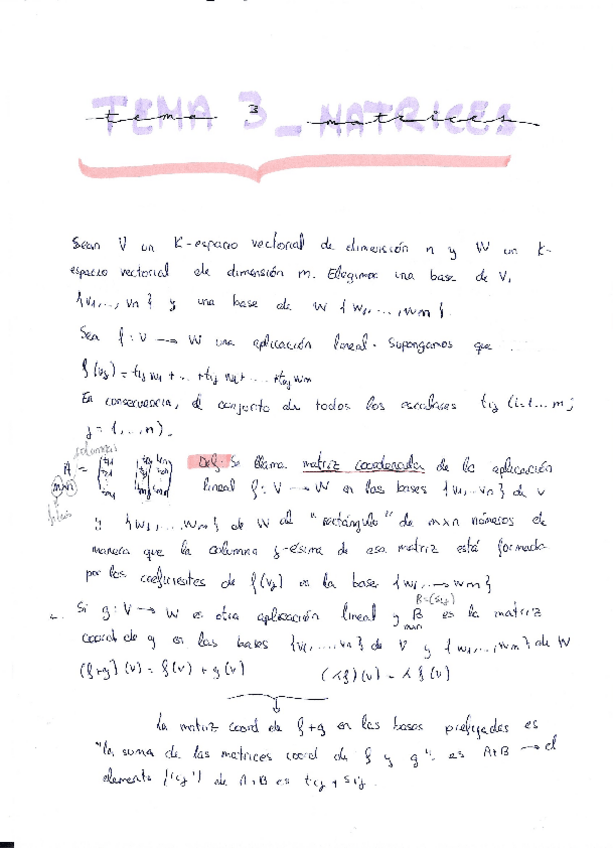 TEMA 3_ MATRICES
tema 3 matrices
Sean V un K-espacio vectorial de dimensión n y W un K-
espacio vectorial de dimensión m. Elegimos una base de V,
{v1,..., vn} y una base de W {w1,...,wm}.
Sea f: V → W una aplicación lineal. Supongamos que
f(vj) = t1j w1 + ... + tij wi + ... + tmj wm
En consecuencia, el conjunto de todos los escalares tij (i=1...m;
j=1,...,n).
columnas
A =
m×n
filas
Def. Se llama matriz coordenada de la aplicación
lineal f: V → W en las bases {v1,..vn} de V
y {w1,...wm} de W al "rectángulo" de m×n números de
manera que la columna j-ésima de esa matriz está formada
por los coeficientes de f(vj) en la base {w1,...wm}
B=(sij)
Si g: V → W es otra aplicación lineal y B es la matriz
m×n
coord de g en las bases {v1,...,vn} de V y {w1,...,wm} de W
(f+g)(v) = f(v) + g(v) (λf)(v) = λ f(v)
La matriz coord de f+g en las bases prefijadas es
"la suma de las matrices coord de f y g": es A+B → el
elemento "ij" de A+B es tij + sij.